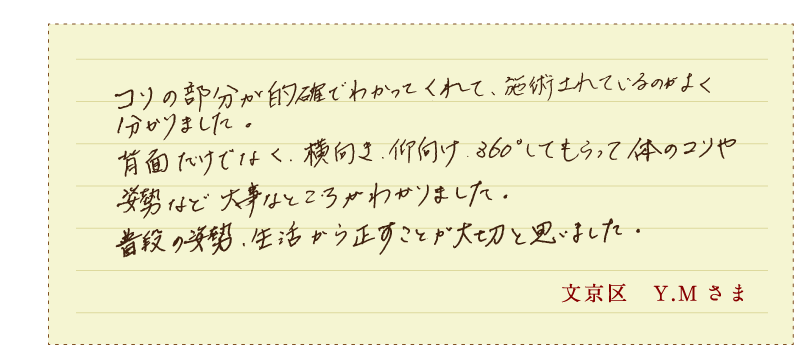 コリの部分が的確でわかってくれて、施術されているのがよく
分かりました。
背面だけでなく、横向き、仰向け、360°してもらって体のコリや
姿勢など大事なところがわかりました。
普段の姿勢、生活から正すことが大切と思いました。
文京区 Y.M さま